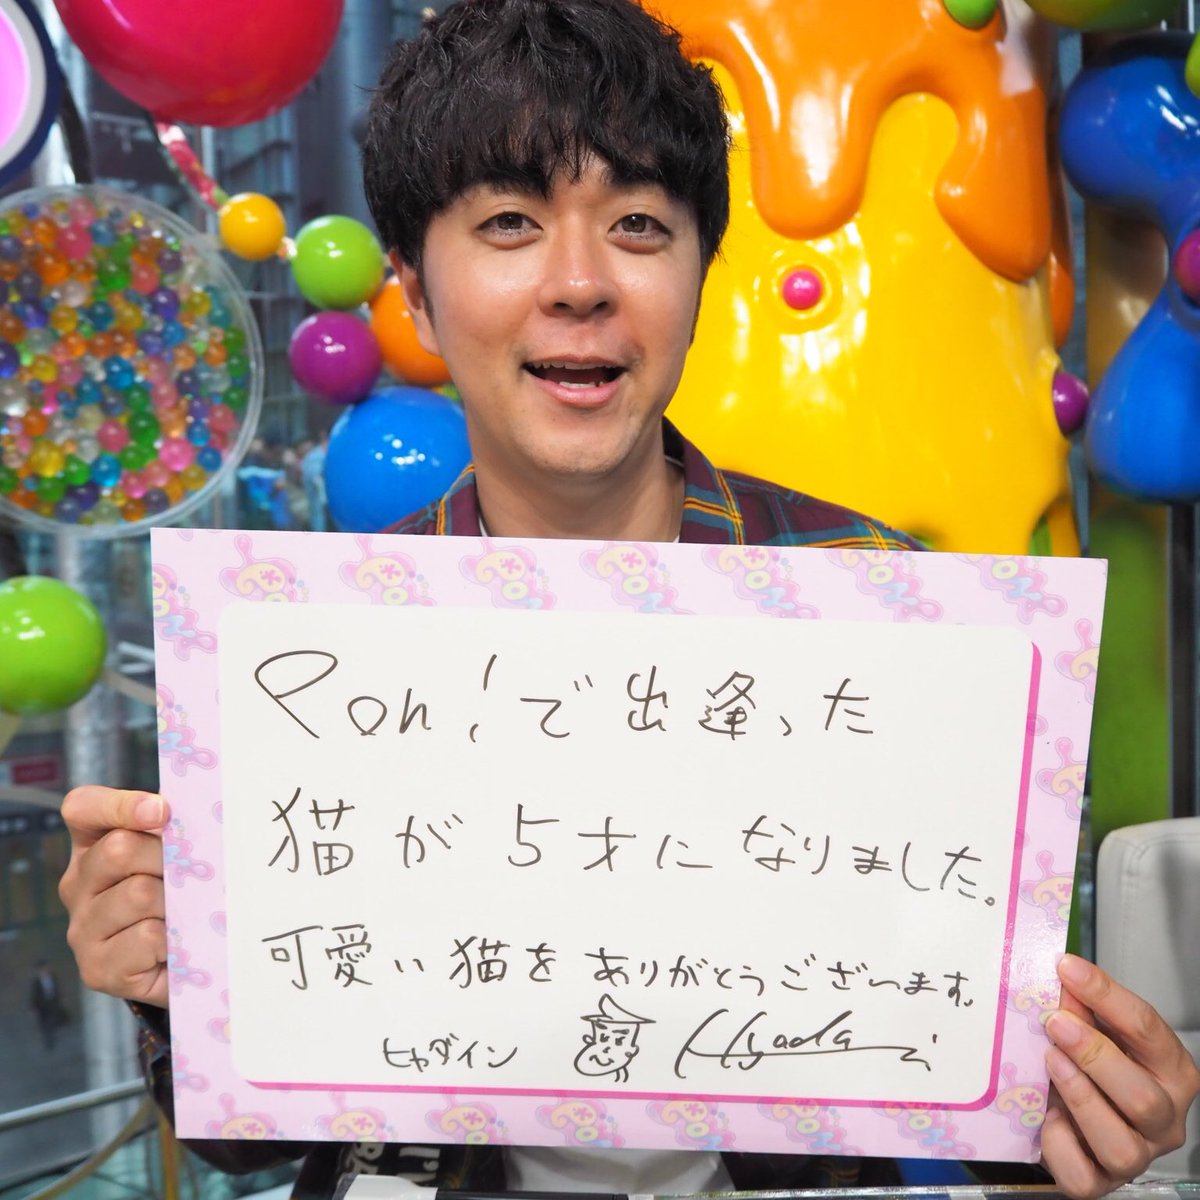 Pon!で出逢った
猫が5才になりました。
可愛い猫をありがとうございます。
ヒャダイン Hyada